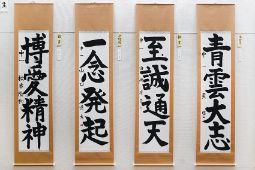 青雲大志
至誠通天
一念発起
博愛精神